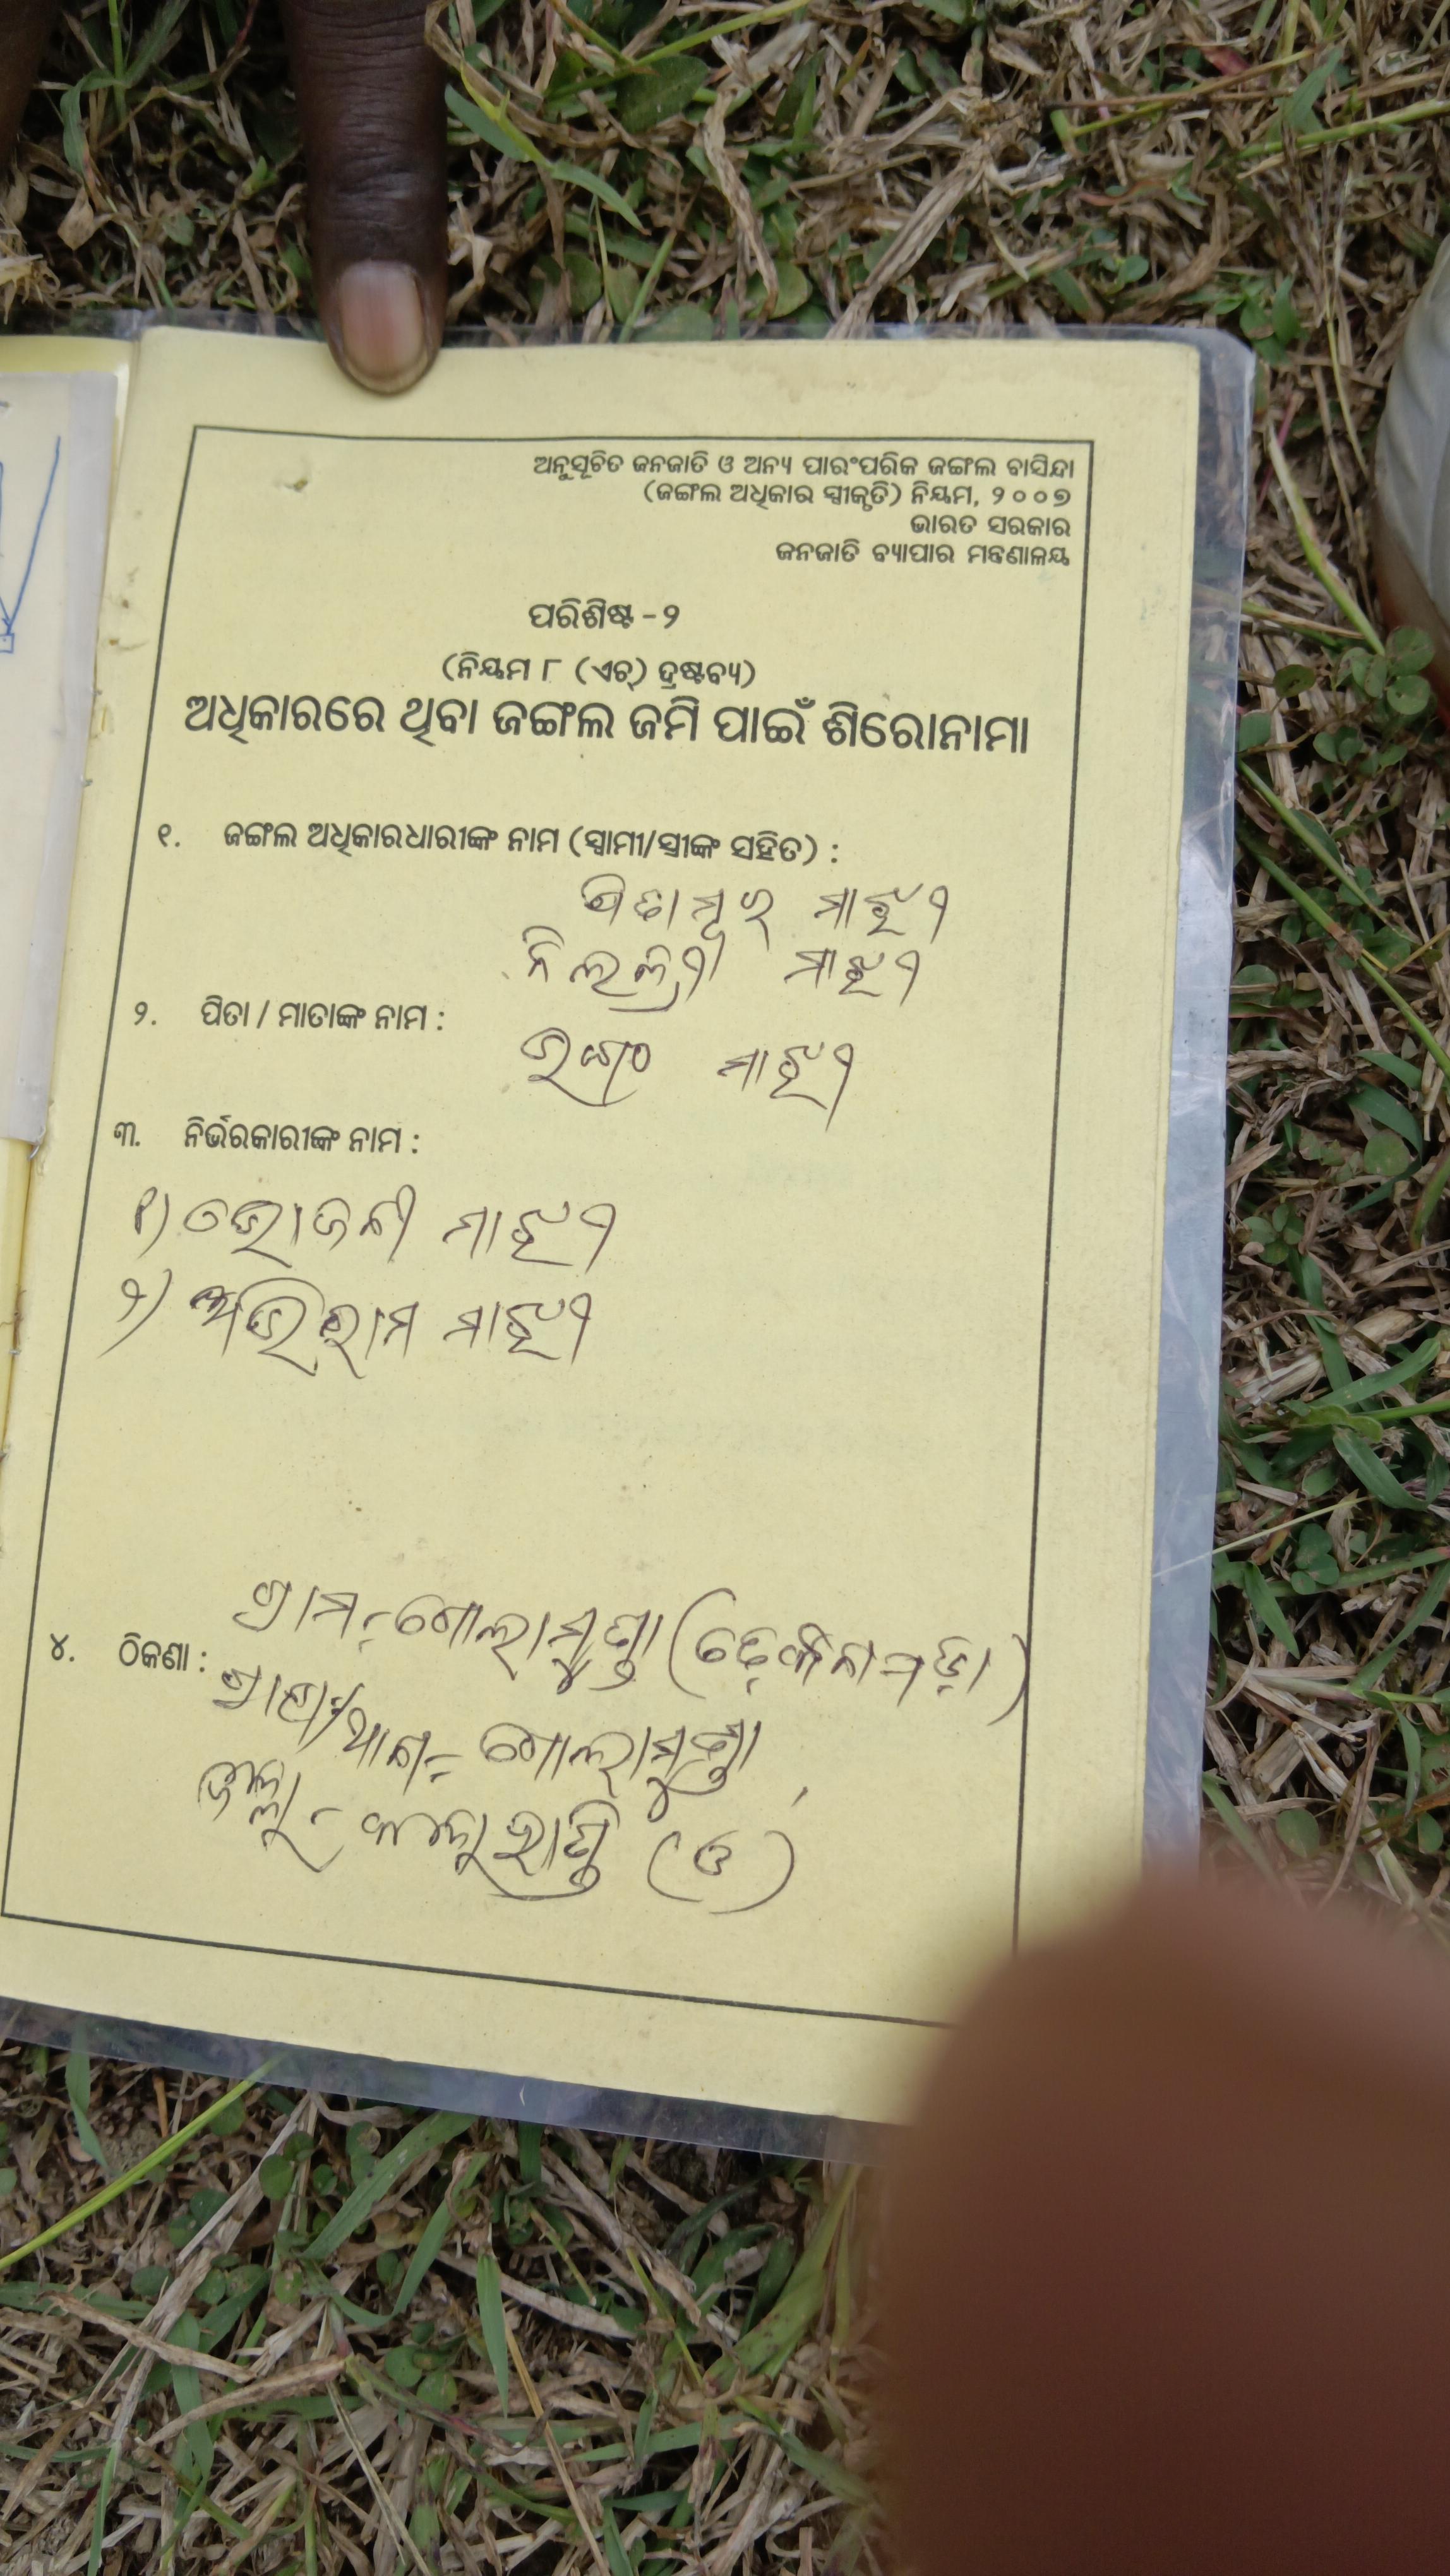 ଅନୁସୂଚିତ ଜନଜାତି ଓ ଅନ୍ୟ ପାରଂପରିକ ଜଙ୍ଗଲ ବାସିନ୍ଦା
(ଜଙ୍ଗଲ ଅଧିକାର ସ୍ୱୀକୃତି) ନିୟମ, ୨୦୦୭
ଭାରତ ସରକାର
ଜନଜାତି ବ୍ୟାପାର ମନ୍ତ୍ରଣାଳୟ
ପରିଶିଷ୍ଟ - ୨
(ନିୟମ ୮ (ଏଚ୍) ଦ୍ରଷ୍ଟବ୍ୟ)
ଅଧିକାରରେ ଥିବା ଜଙ୍ଗଲ ଜମି ପାଇଁ ଶିରୋନାମା
୧. ଜଙ୍ଗଲ ଅଧିକାରଧାରୀଙ୍କ ନାମ (ସ୍ୱାମୀ/ସ୍ତ୍ରୀଙ୍କ ସହିତ) :
ମାଝୀ
ମାଝୀ
୨. ପିତା / ମାତାଙ୍କ ନାମ :
ମାଝୀ
୩. ନିର୍ଭରକାରୀଙ୍କ ନାମ :
୧) ଭୋଜନୀ ମାଝୀ
୨) ଅଭିରାମ ମାଝୀ
ଗ୍ରାମ- ଗୋଲାମୁଣ୍ଡା
୪. ଠିକଣା :
ଥାନା- ଗୋଲାମୁଣ୍ଡା,
ଜିଲ୍ଲା- କଳାହାଣ୍ଡି (ଓ)